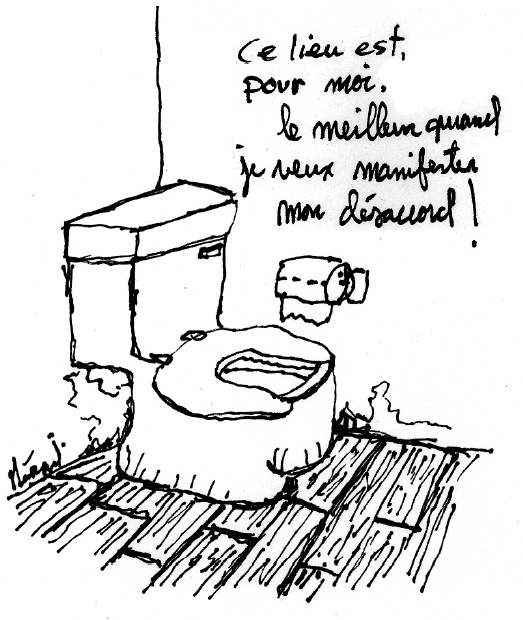 Ce lieu est,
pour moi.
le meilleur quand
je veux manifester
mon désaccord !